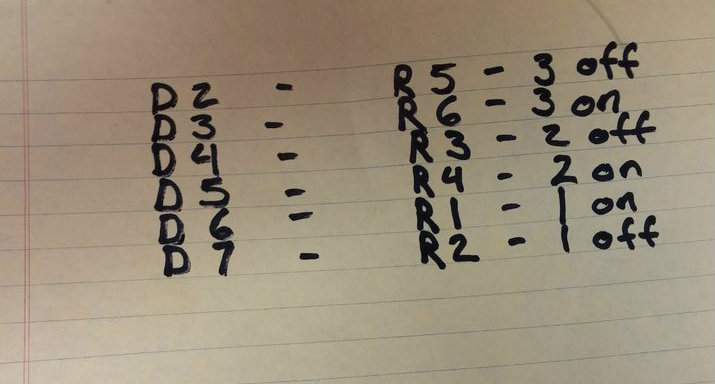 D 2 - R 5 - 3 off
D 3 - R 6 - 3 on
D 4 - R 3 - 2 off
D 5 - R 4 - 2 on
D 6 - R 1 - 1 on
D 7 - R 2 - 1 off